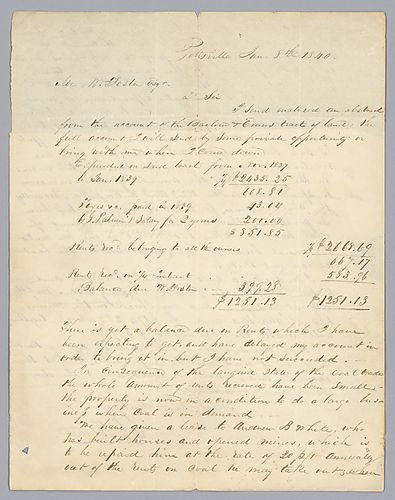 Pottsville Jan. 8th 1840.
Mr W. Foster Esqr.
D Sir
I send enclosed an abstract
from the account of the Barlow & Evans tract of land, the
full account I will send by some private opportunity or
bring with me when I come down
Expended on said tract from Nov. 1837
to Jan. 1839 $2435.25
608.81
Taxes &c. paid in 1839 43.04
Salary for 2 years 200.00
$851.85
Rents recd. belonging to all the owners $2668.69
667.17
Rents recd. on 1/4 Interest 583.96
Balance due W. Foster 399.28
$1251.13 $1251.13
There is yet a balance due on Rents which I have
been expecting to get, and have delayed my account in
order to bring it in, but I have not succeeded.
In Consequence of the languid State of the Coal trade
the whole amount of rents received have been small
the property is now in a condition to do a large bus-
iness when Coal is in demand
We have given a lease to Andrew B White, who
has built houses and opened mines, which is
to be repaid him at the rate of 20 p/t annually
out of the rents on Coal he may take out, when